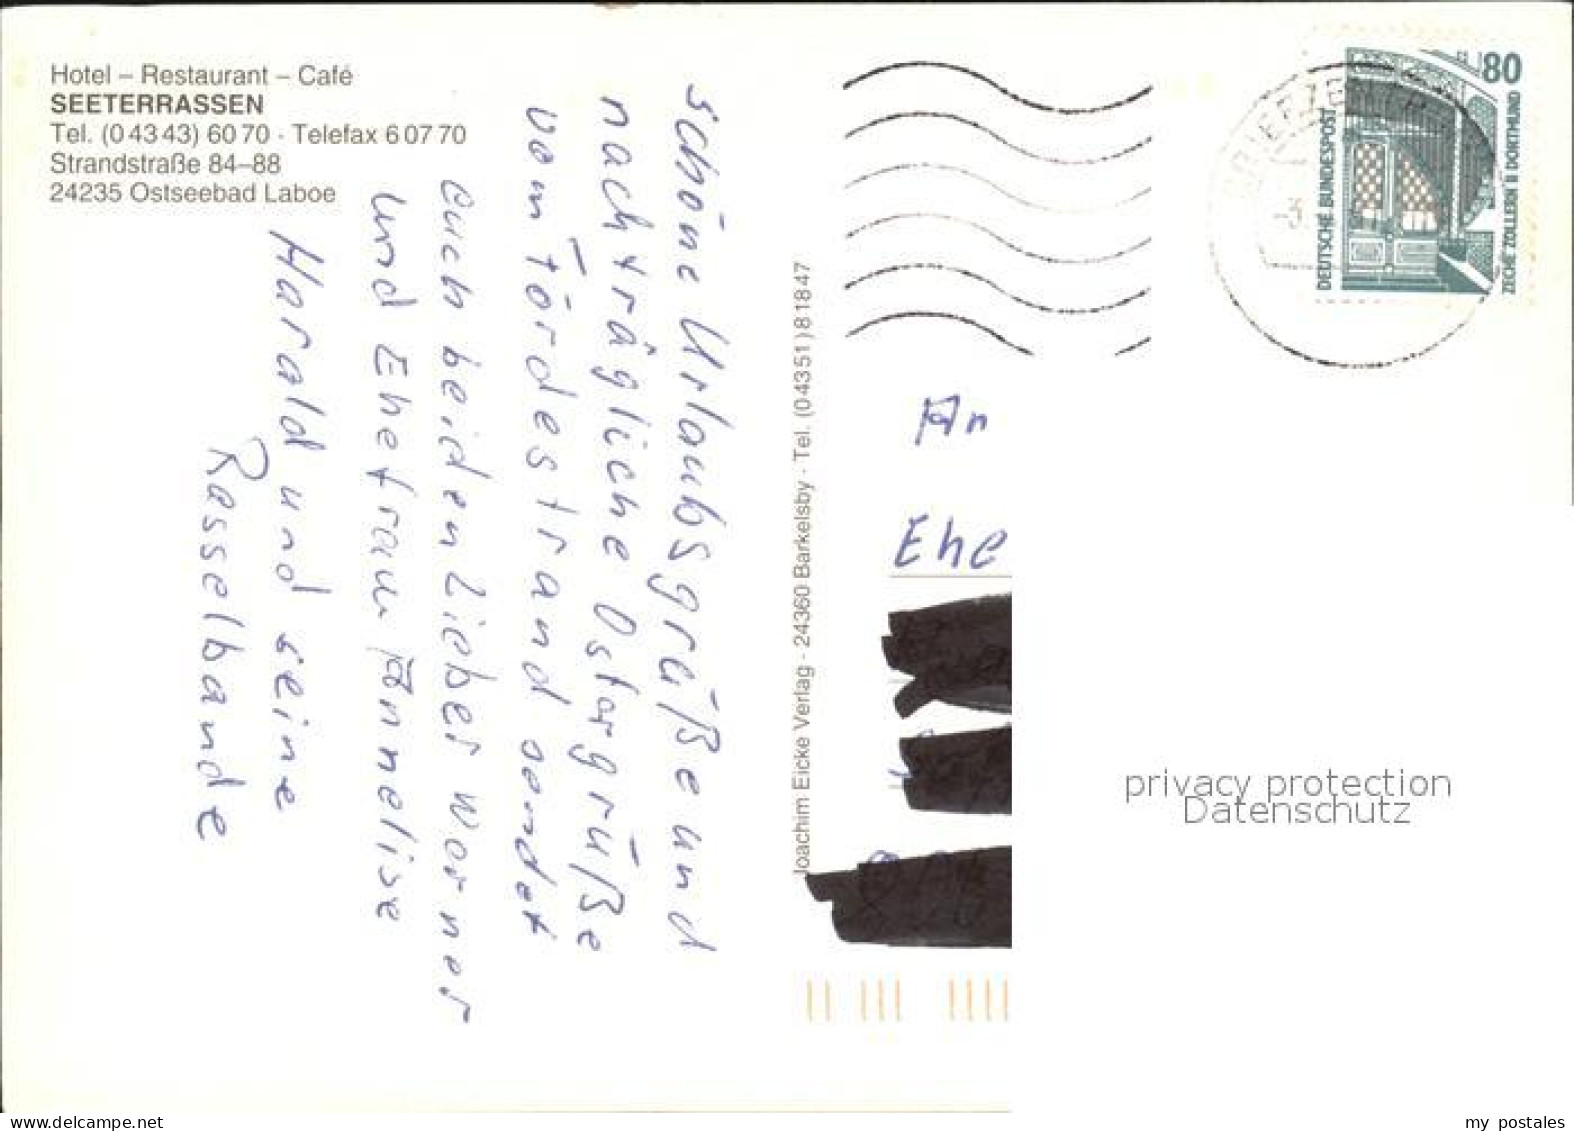 Hotel – Restaurant – Café
SEETERRASSEN
Tel. (0 43 43) 60 70 · Telefax 6 07 70
Strandstraße 84–88
24235 Ostseebad Laboe
Schöne Urlaubsgrüße und
nachträgliche Ostergrüße
vom Fördestrand sendet
euch beiden Lieber Werner
und Ehefrau Annelise
Harald und seine
Rasselbande
Joachim Eicke Verlag · 24360 Barkelsby · Tel. (0 43 51) 8 18 47
80
DEUTSCHE BUNDESPOST
ZECHE ZOLLERN II DORTMUND
An
Ehe
privacy protection
Datenschutz
www.delcampe.net
my postales